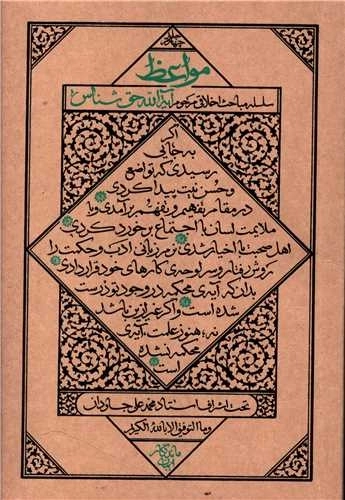 مواعظ
سلسله مباحث اخلاقی مرحوم آیة‌الله حق شناس
اگر
به جائی
رسیدی که تواضع
و حسن نیت پیدا کردی
در مقام تفهیم و تفهّم برآمدی و با
ملایمت لسان با اجتماع برخورد کردی
اهل صحبت با اخیار شدی نرم زبانی ادب و حکمت را
روش رفتار و سرلوحه‌ی کارهای خود قرار دادی
بدان که آیه‌ی محکمه در وجود تو درست
شده است و اگر غیر از این باشد
نه؛ هنوز علمت، آیه‌ی
محکمه نشده
است
تحت اشراف استاد محمد علی جاودان
وما التوفیق الا بالله الکریم